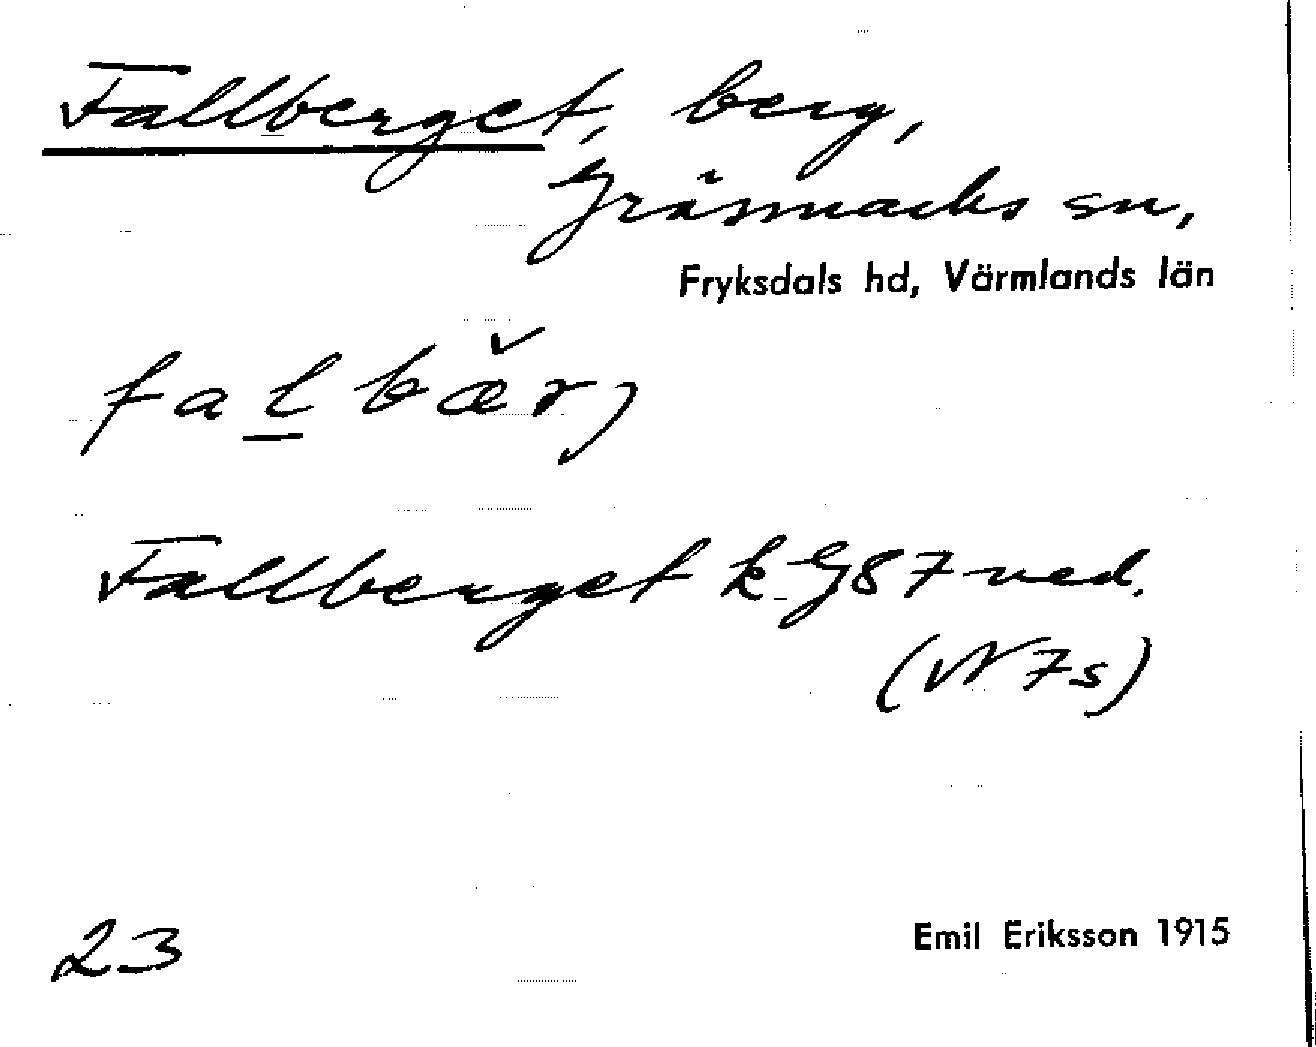 Fallberget, berg,
Gräsmarks sn,
Fryksdals hd, Värmlands län
falbær
Fallberget k G87 ned.
(W7s)
23
Emil Eriksson 1915